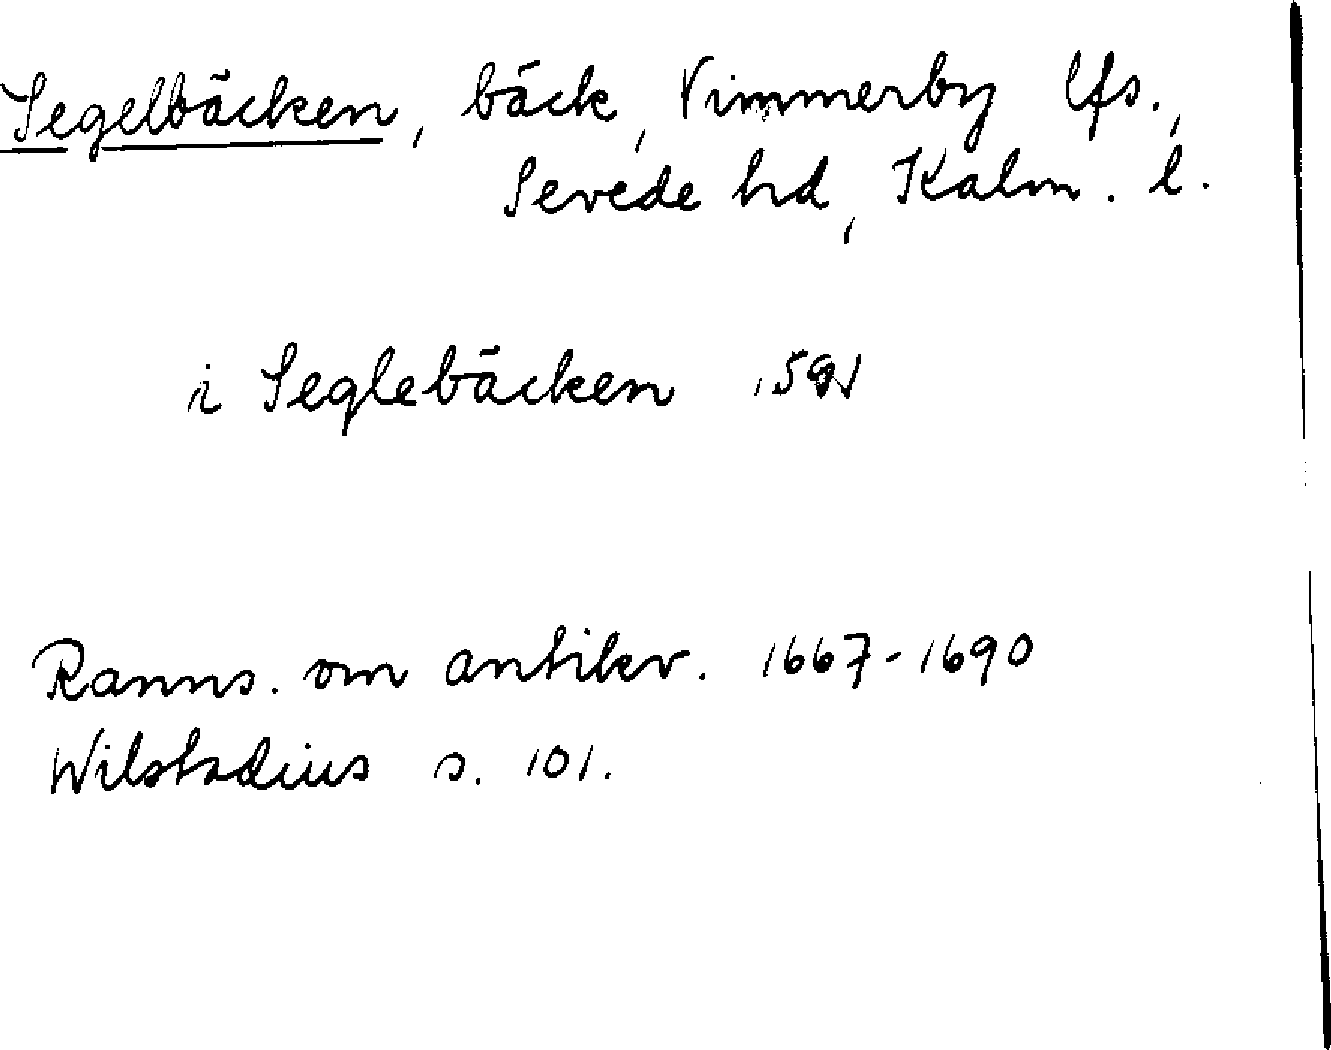 Segelbäcken, bäck, Vimmerby lfs.,
Sevede hd, Kalm. l.
i Seglebäcken 1591
Ranns. om antikv. 1667-1690
Wilstadius s. 101.